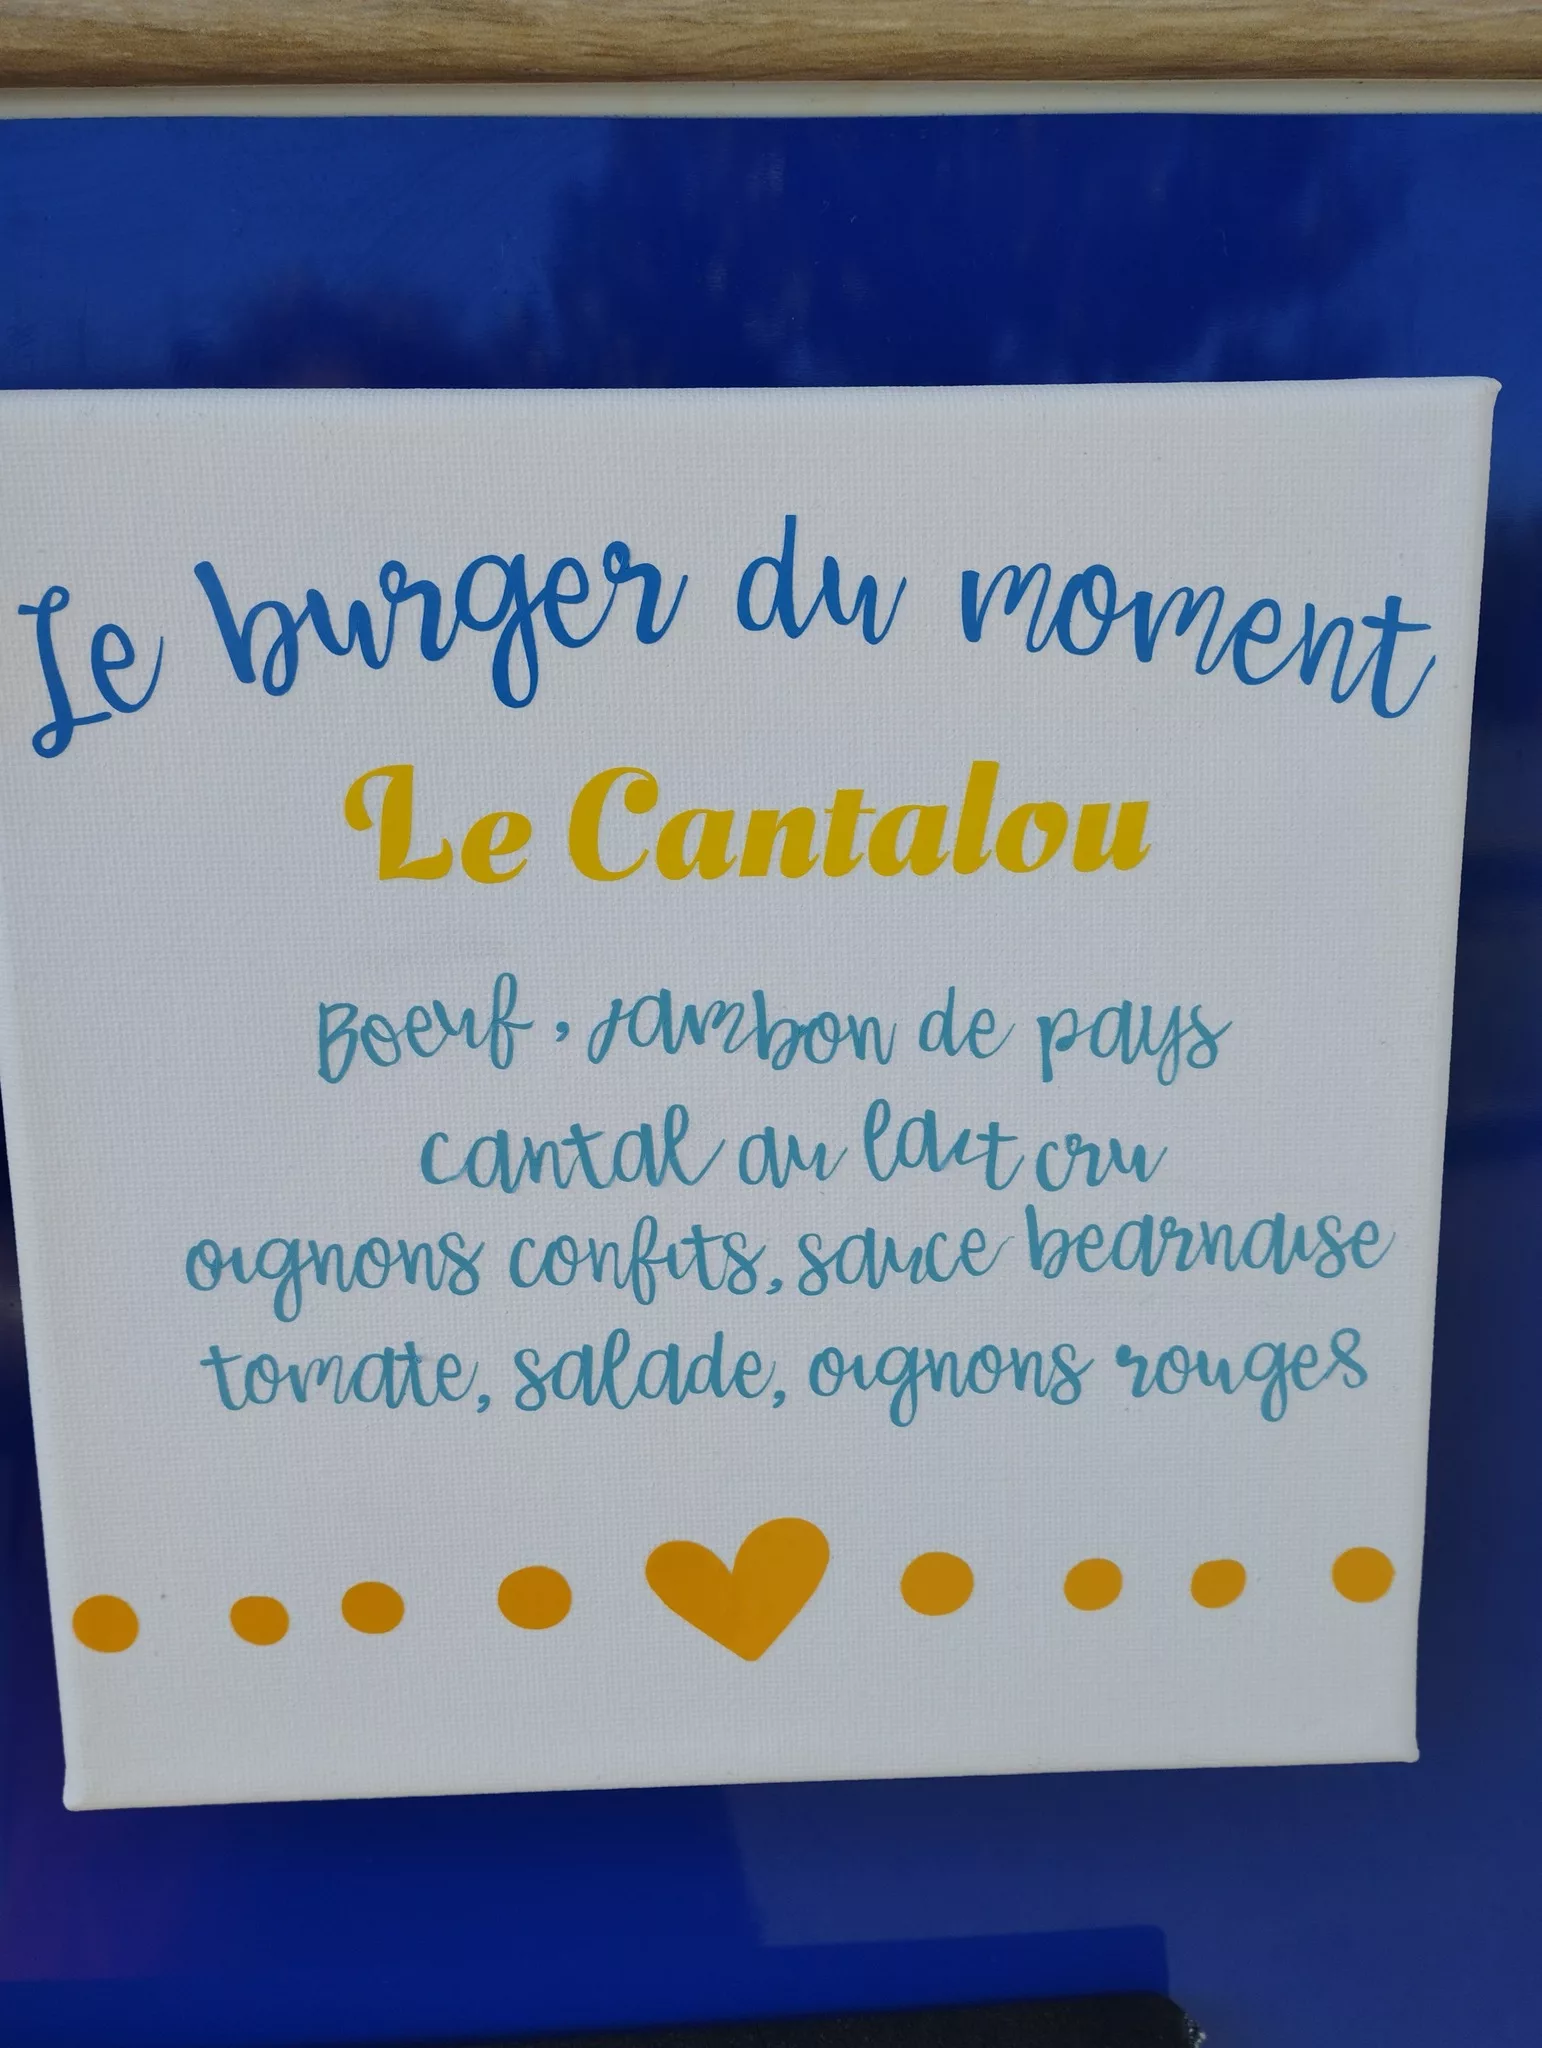 Le burger du moment
Le Cantalou
Boeuf, Jambon de pays
cantal au lait cru
oignons confits, sauce bearnaise
tomate, salade, oignons rouges